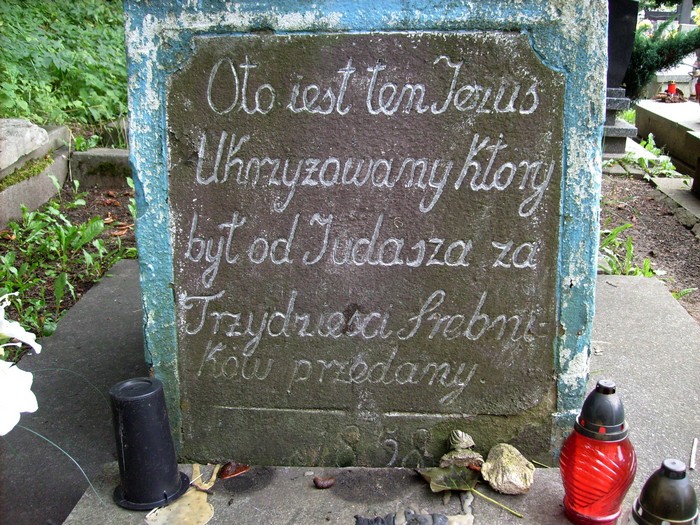 Oto iest ten Jezus
Ukrzyżowany Ktory
był od Judasza za
Trzydzieści Srebni-
ków przedany.